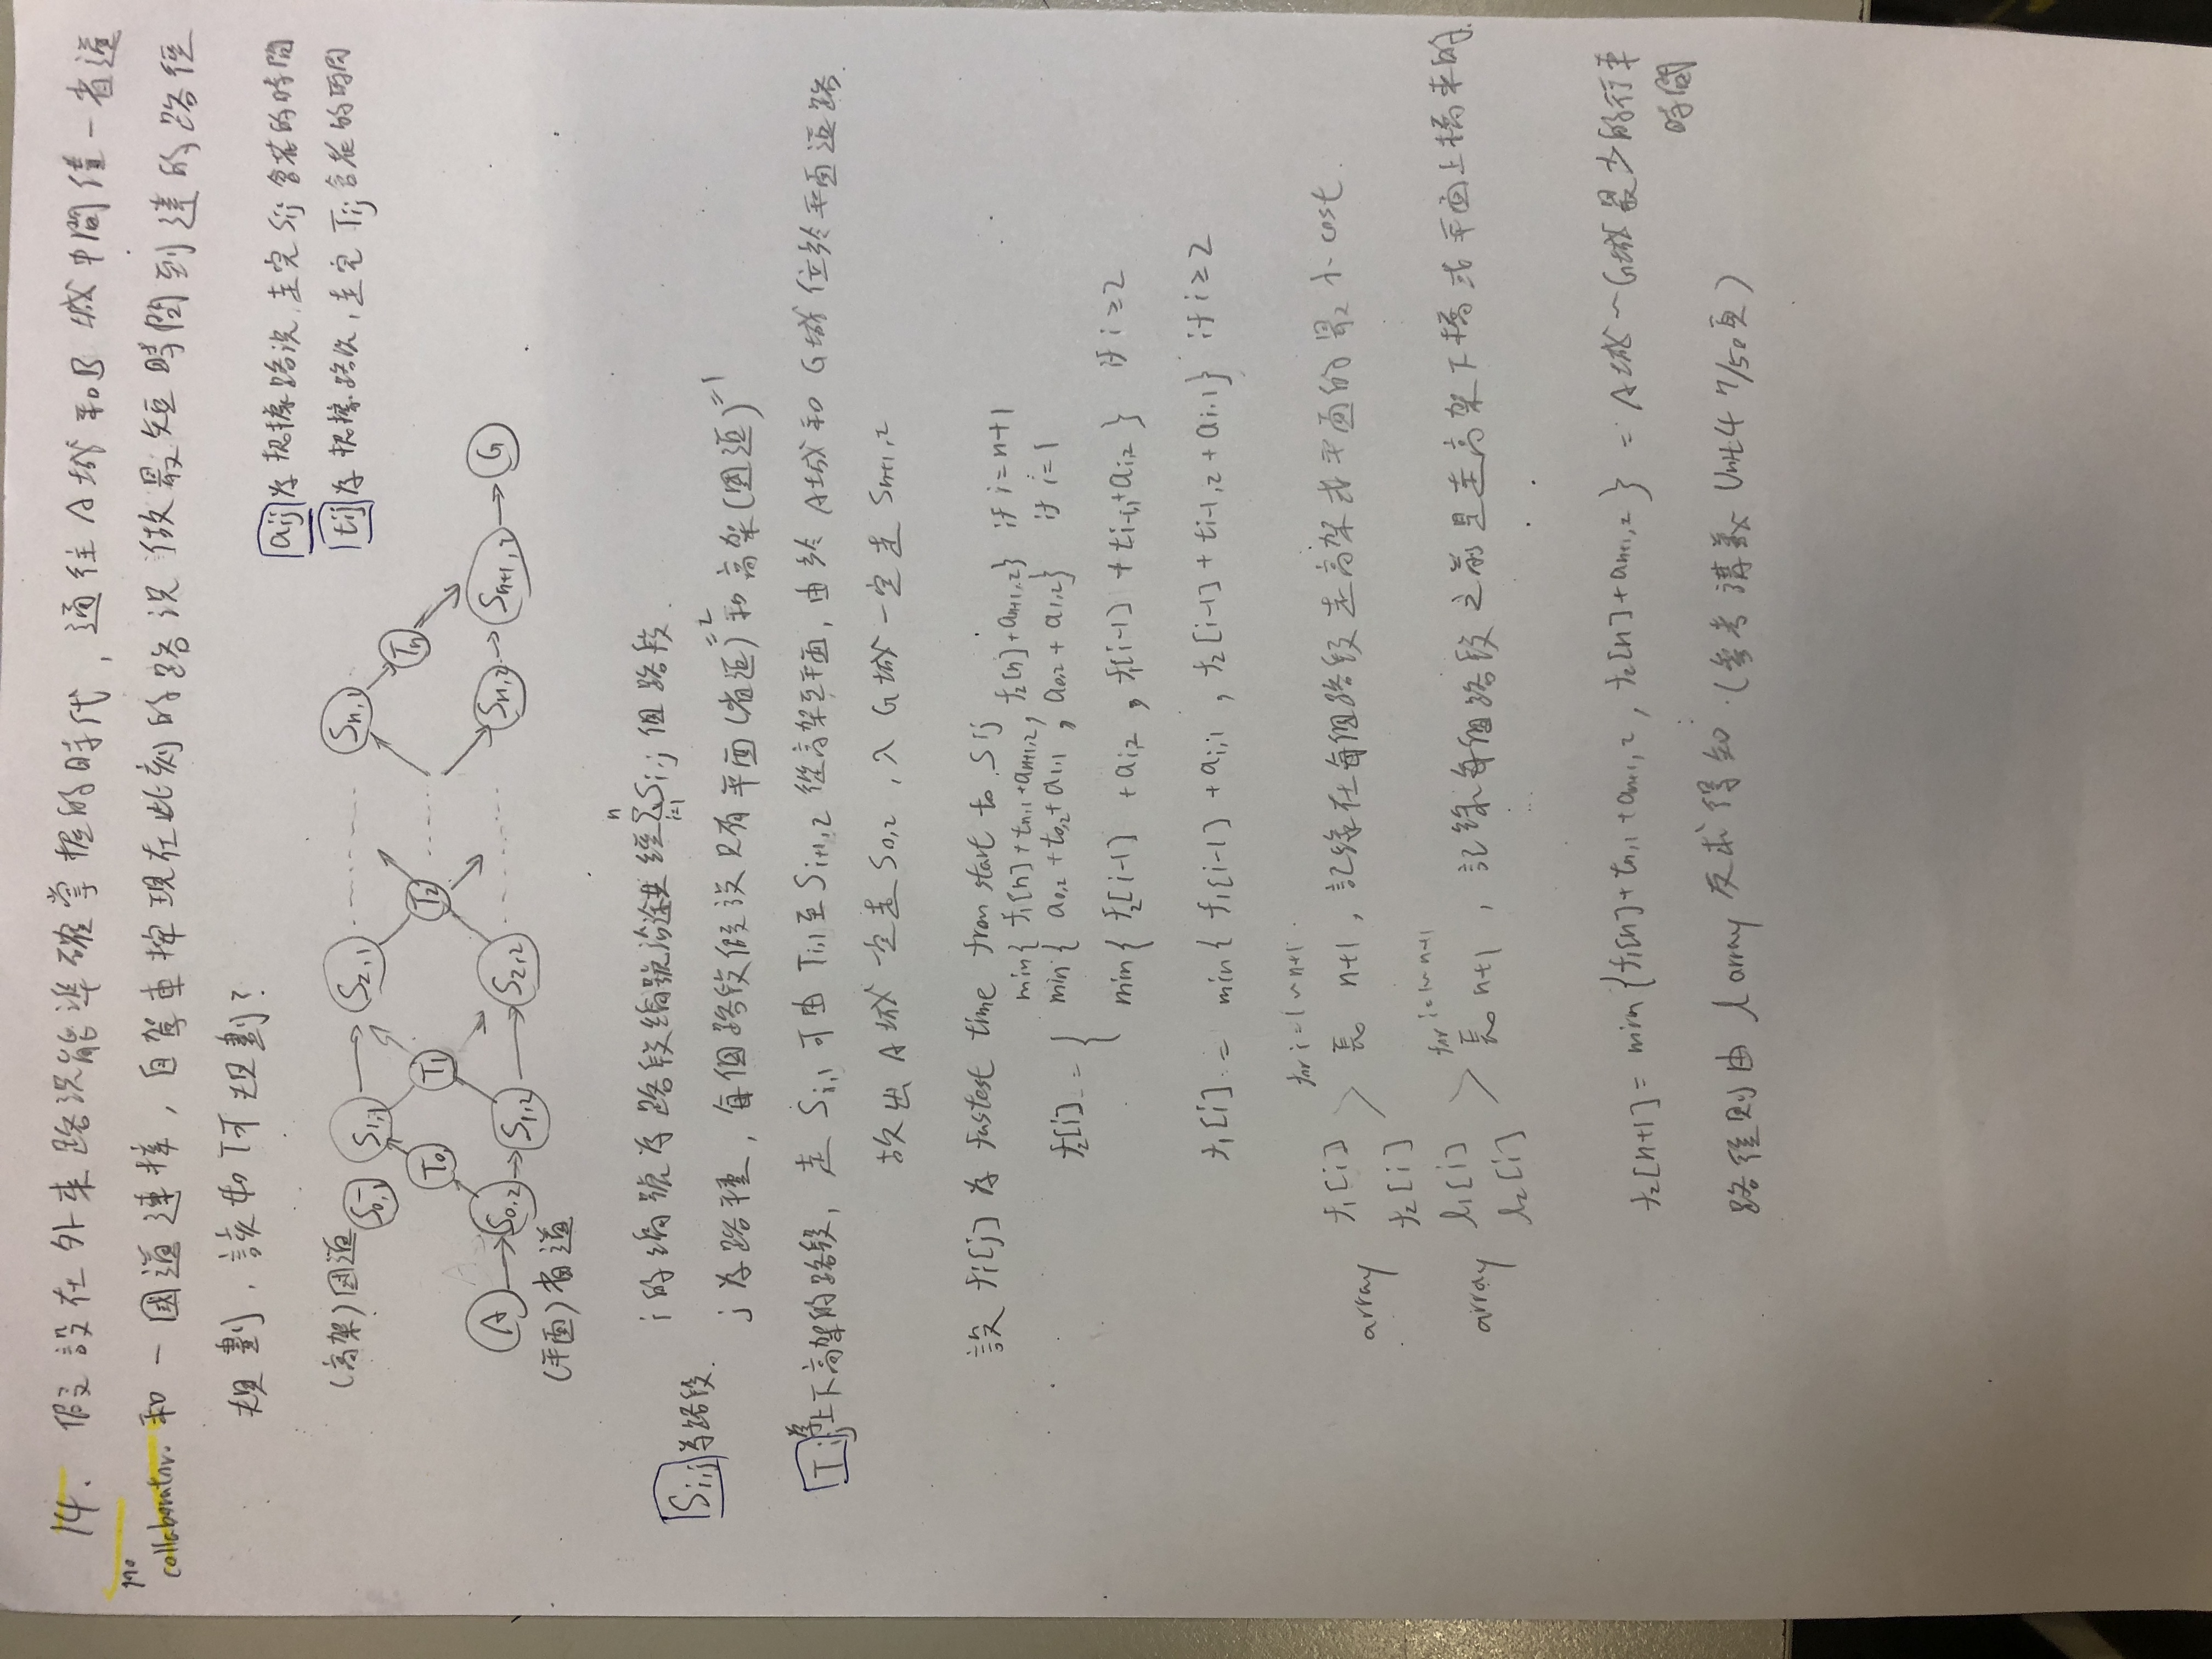 14. 假設在外來路況能準確掌握的時代，通往A城和B城中間僅一省道
no collaborator.
和一國道連接，自駕車按現在此刻的路況做最短時間到達的路徑
規劃，該如何規劃？
aij 為根據路況，走完Sij會花的時間
tij 為根據路況，走完Tij會花的時間
(高架)國道 S0,1 S1,1 S2,1 Sn,1
T0 T1 T2 Tn
A S0,2 S1,2 S2,2 Sn,2 Sn+1,2 G
(平面)省道
i的編號為路段編號沿途共經 n Σ i=1 Si,j 個路段.
Si,j 為路段.
j為路種，每個路段假設只有平面(省道)=2和高架(國道)=1
Tij 為上下高架的路段，走Si,1可由Ti,1至Si+1,2從高架至平面，由於A城和G城位於平面道路.
故出A城一定走S0,2，入G城一定走Sn+1,2
設 fi[j] 為 fastest time from start to Sij
min{ f1[n]+tn,1+an+1,2, f2[n]+an+1,2} if i=n+1
f2[i] = { min{ a0,2+t0,2+a1,1 , a0,2+a1,2} if i=1
min{ f2[i-1] +ai,2 , f1[i-1] +ti-1,1+ai,2 } if i≥2
f1[i] = min{ f1[i-1]+ai,1 , f2[i-1]+ti-1,2+ai,1} if i≥2
for i=1~n+1.
array f1[i] f2[i] > 長 n+1，記錄在每個路段走高架或平面的最小cost.
for i=1~n+1
array l1[i] l2[i] > 長 n+1，記錄每個路段之前是走高架下橋或平面上橋來的.
f2[n+1] = min{f1[n]+tn,1+an+1,2, f2[n]+an+1,2} = A城~G城最少的行車
時間
路徑則由 l array 反求得知.(參考講義 Unit4 7/50頁)